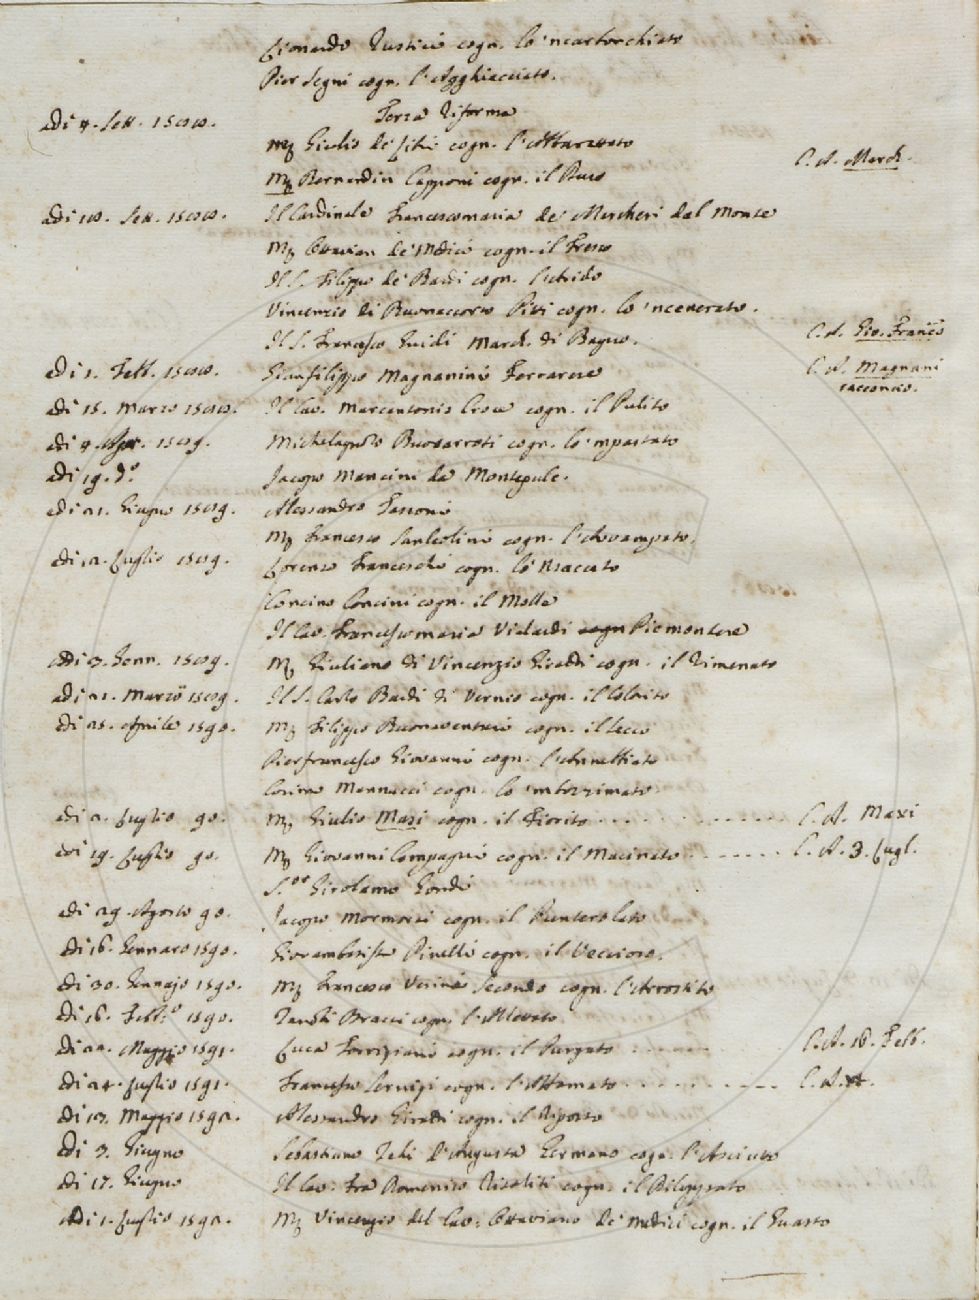 Lionardo Rustici cogn. lo 'ncartocchiato
Pier Segni cogn. l'Agghiacciato.
Terza Riforma
adi 4. Sett. 1588.
Mʳ Giulio de' Libri cogn. l'Abbruzzato
C. A. March.
Mʳ Bernardin Capponi cogn. il Raso
adi 18. Sett. 1588.
Il Cardinale Francescomaria de' Marchesi dal Monte
Mʳ Ottavian de' Medici cogn. il Fresco
Il S. Filippo de' Bardi cogn. l'Arido
Vincenzio di Buonaccorso Pitti cogn. lo 'ncenerato.
Il S. Francesco Guidi March. di Bagno.
C. A. Gio. Franco
adi 1. Febb. 1588.
Gianfilippo Magnanini Ferrarese
C. A. Magnani
racconcio.
adi 15. Marzo 1588.
Il Cav. Marcantonio Croce cogn. il Pulito
adi 4. Apr. 1589.
Michelagnolo Buonarroti cogn. lo 'mpastato
adi 19. dº
Jacopo Mancini da Montepulc.
adi 21. Giugno 1589.
Alessandro Tassoni
Mʳ Francesco Sanleolini cogn. l'Avvampato.
adi 12. Luglio 1589.
Lorenzo Franceschi cogn. lo 'nsaccato
Concino Concini cogn. il Molle
Il Cav. Francescomaria Vialardi cogn Piemontese
adi 3. Genn. 1589.
Mʳ Giuliano di Vincenzio Giraldi cogn. il Rimenato
adi 21. Marzo 1589.
Il S. Carlo Bardi di Vernio cogn. il Colorito
adi 25. Aprile 1590.
Mʳ Filippo Buonaventuri cogn. il Secco
Pierfrancesco Giovanni cogn. l'Annebbiato
Cosimo Mannucci cogn. lo 'mbozzimato
adi 2. Luglio 90.
Mʳ Giulio Masi cogn. il Fiorito
C. A. Maxi
adi 19. Luglio 90.
Mʳ Giovanni Compagni cogn. il Macinato
C. A. 3. Lugl.
S.ᵒʳ Girolamo Gondi
adi 29. Agosto 90.
Jacopo Mormorai cogn. il Punterolato
adi 16. Gennaro 1590.
Giovambatista Pinelli cogn. il Veccioso.
adi 30. Gennajo 1590.
Mʳ Francesco Verini Secondo cogn. l'Arrostito
adi 16. Febb.º 1590.
Zanobi Bracci cogn. l'Alloppiato
adi 22. Maggio 1591.
Luca Torrigiani cogn. il Purgato
C. A. 16. Febb.
adi 24. Luglio 1591.
Francesco Sernigi cogn. l'Affamato
C. A.
adi 13. Maggio 1592.
Alessandro Giraldi cogn. il Riposto
adi 3. Giugno
Sebastiano Zehi d'Augusta Germano cogn. l'Asciutto
adi 17. Giugno
Il Cav. Fra Domenico Rinaldi cogn. il Rilegato
adi 1. Luglio 1592.
Mʳ Vincenzio del Cav. Ottaviano de' Medici cogn. il Guasto